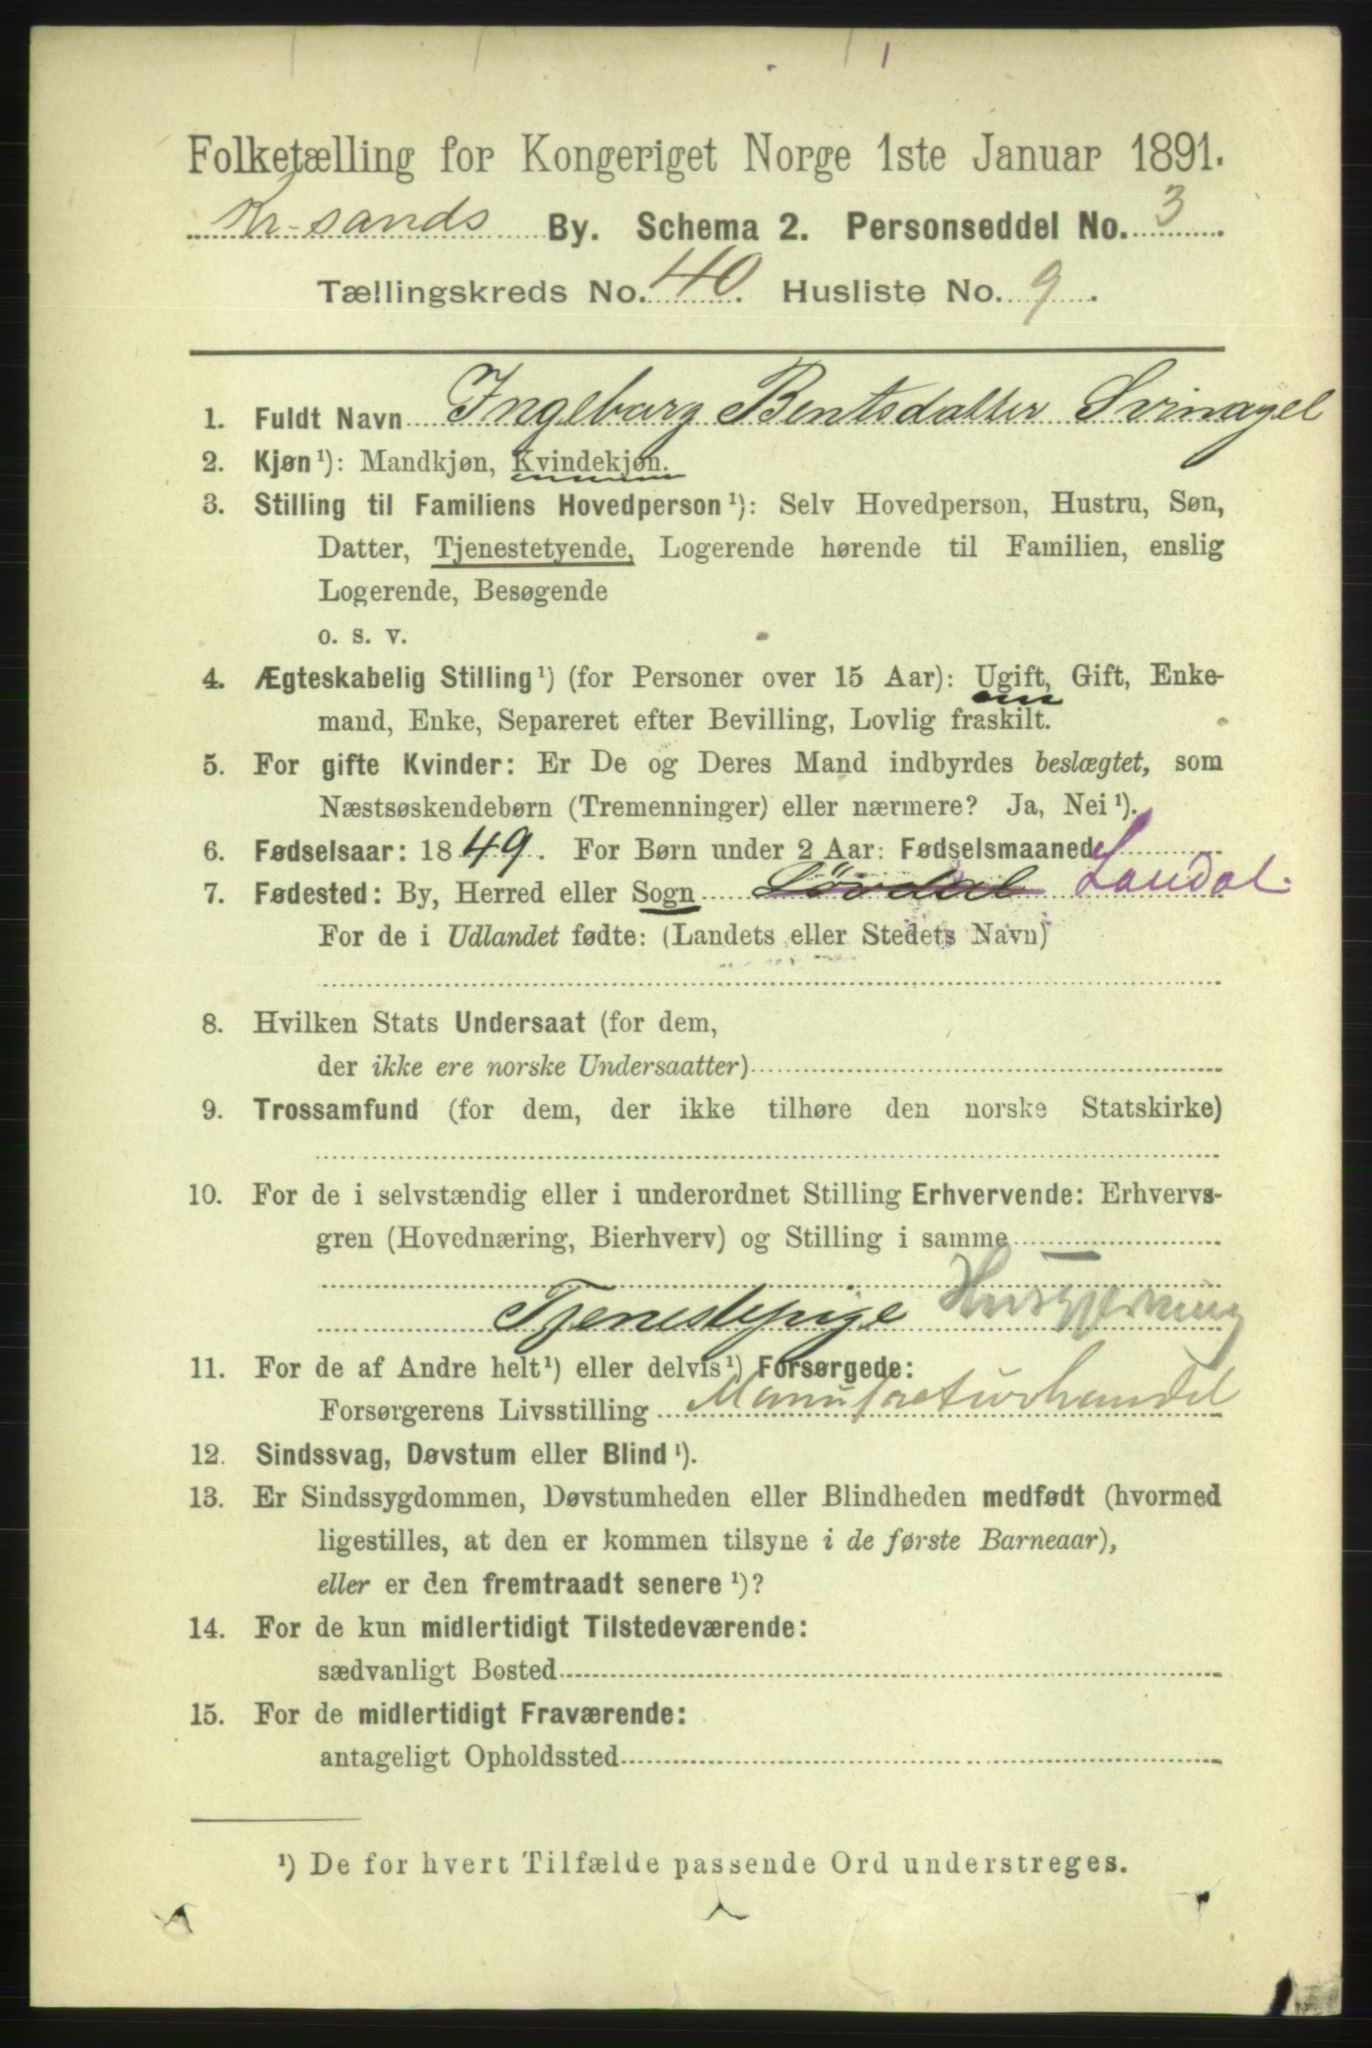 Folketælling for Kongeriget Norge 1ste Januar 1891.
Kr-sands By. Schema 2. Personseddel No. 3
Tællingskreds No. 40. Husliste No. 9.
1. Fuldt Navn Ingeborg Bentsdatter Svinagel
2. Kjøn¹): Mandkjøn, Kvindekjøn.
3. Stilling til Familiens Hovedperson¹): Selv Hovedperson, Hustru, Søn,
Datter, Tjenestetyende, Logerende hørende til Familien, enslig
Logerende, Besøgende
o. s. v.
4. Ægteskabelig Stilling¹) (for Personer over 15 Aar): Ugift, Gift, Enke-
mand, Enke, Separeret efter Bevilling, Lovlig fraskilt.
5. For gifte Kvinder: Er De og Deres Mand indbyrdes beslægtet, som
Næstsøskendebørn (Tremenninger) eller nærmere? Ja, Nei¹).
6. Fødselsaar: 1849. For Børn under 2 Aar: Fødselsmaaned
7. Fødested: By, Herred eller Sogn Lövdal Laudal.
For de i Udlandet fødte: (Landets eller Stedets Navn)
8. Hvilken Stats Undersaat (for dem,
der ikke ere norske Undersaatter)
9. Trossamfund (for dem, der ikke tilhøre den norske Statskirke)
10. For de i selvstændig eller i underordnet Stilling Erhvervende: Erhvervs-
gren (Hovednæring, Bierhverv) og Stilling i samme
Tjenestepige Husgjerning
11. For de af Andre helt¹) eller delvis¹) Forsørgede:
Forsørgerens Livsstilling Manufacturhandel
12. Sindssvag, Døvstum eller Blind¹).
13. Er Sindssygdommen, Døvstumheden eller Blindheden medfødt (hvormed
ligestilles, at den er kommen tilsyne i de første Barneaar),
eller er den fremtraadt senere¹)?
14. For de kun midlertidigt Tilstedeværende:
sædvanligt Bosted
15. For de midlertidigt Fraværende:
antageligt Opholdssted
¹) De for hvert Tilfælde passende Ord understreges.